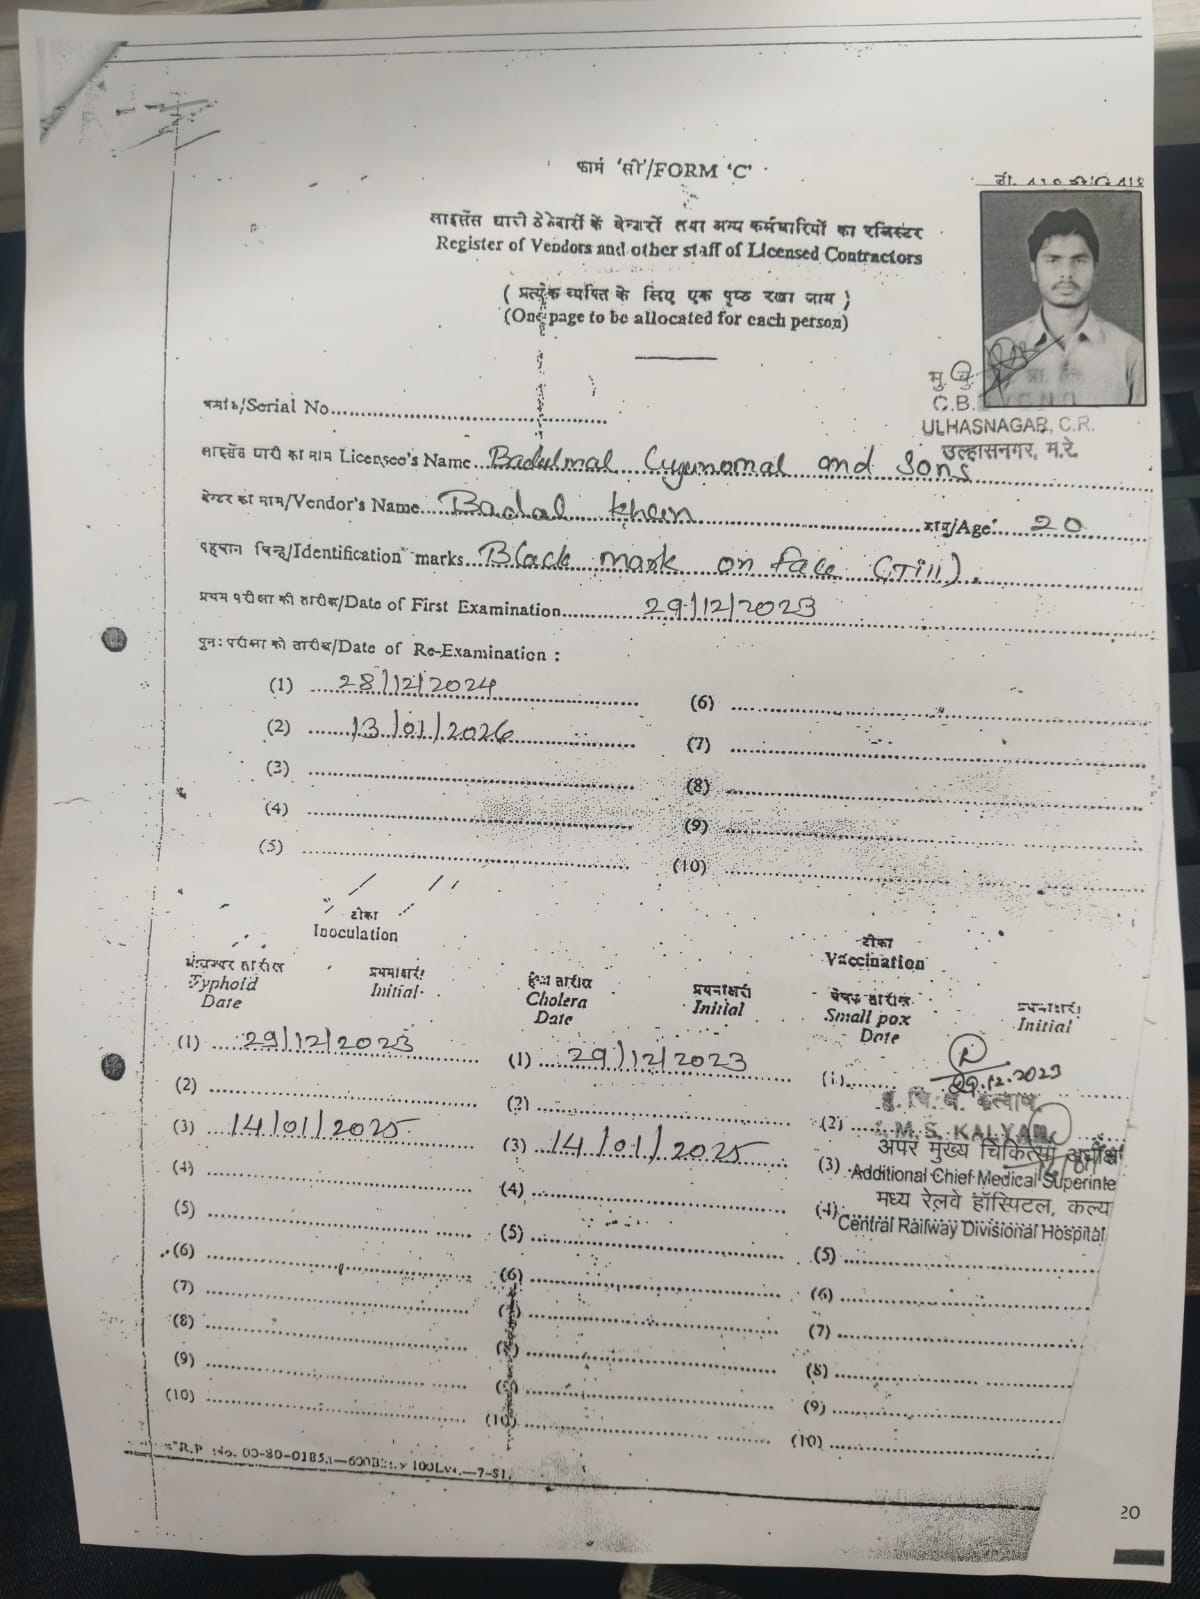 फार्म 'सी'/FORM 'C'
लाइसेंस धारी ठेकेदारों के वेन्डरों तथा अन्य कर्मचारियों का रजिस्टर
Register of Vendors and other staff of Licensed Contractors
( प्रत्येक व्यक्ति के लिए एक पृष्ठ रखा जाय )
(One page to be allocated for each person)
मु. बु.
C.B.
ULHASNAGAR, C.R.
उल्हासनगर, म.रे.
क्रमांक/Serial No.
लाइसेंस धारी का नाम Licensee's Name Badulmal and Sons
वेन्डर का नाम/Vendor's Name Badal khan आयु/Age: 20
पहचान चिन्ह/Identification marks Black mark on face (Till).
प्रथम परीक्षा की तारीख/Date of First Examination 29/12/2023
पुनः परीक्षा की तारीख/Date of Re-Examination :
(1) 28/12/2024 (6)
(2) 13/01/2026 (7)
(3) (8)
(4) (9)
(5) (10)
टीका
Inoculation
टीका
Vaccination
तारीख
Typhoid
Date
प्रथमाक्षरी
Initial
हैजा तारीख
Cholera
Date
प्रथमाक्षरी
Initial
चेचक तारीख
Small pox
Date
प्रथमाक्षरी
Initial
(1) 29/12/2023 (1) 29/12/2023 (1) 29.12.2023
(2) (2) (2)
M.S. KALYAN
(3) 14/01/2025 (3) 14/01/2025 (3)
अपर मुख्य चिकित्सा अधीक्ष
Additional Chief Medical Superinte
मध्य रेलवे हॉस्पिटल, कल्य
Central Railway Divisional Hospital
(4) (4) (4)
(5) (5) (5)
(6) (6) (6)
(7) (7)
(8) (8)
(9) (9)
(10) (10) (10)
20